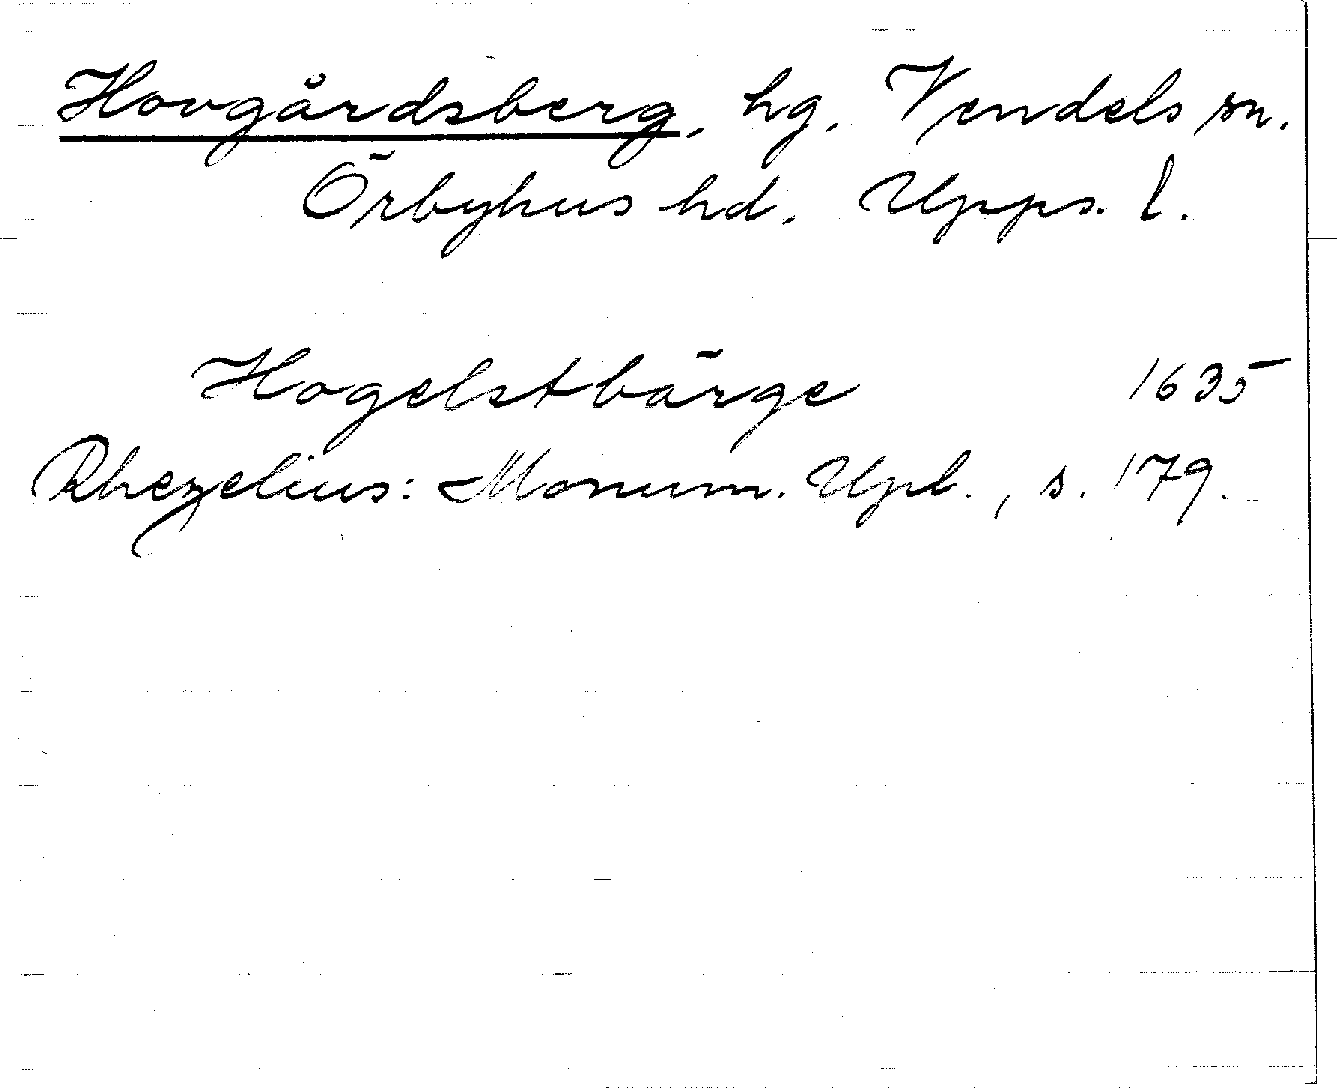 Hovgårdsberg, hg. Vendels sn.
Örbyhus hd. Upps. l.
Hogelstbärge 1635
Rhezelius: Monum. Upl., s. 179.